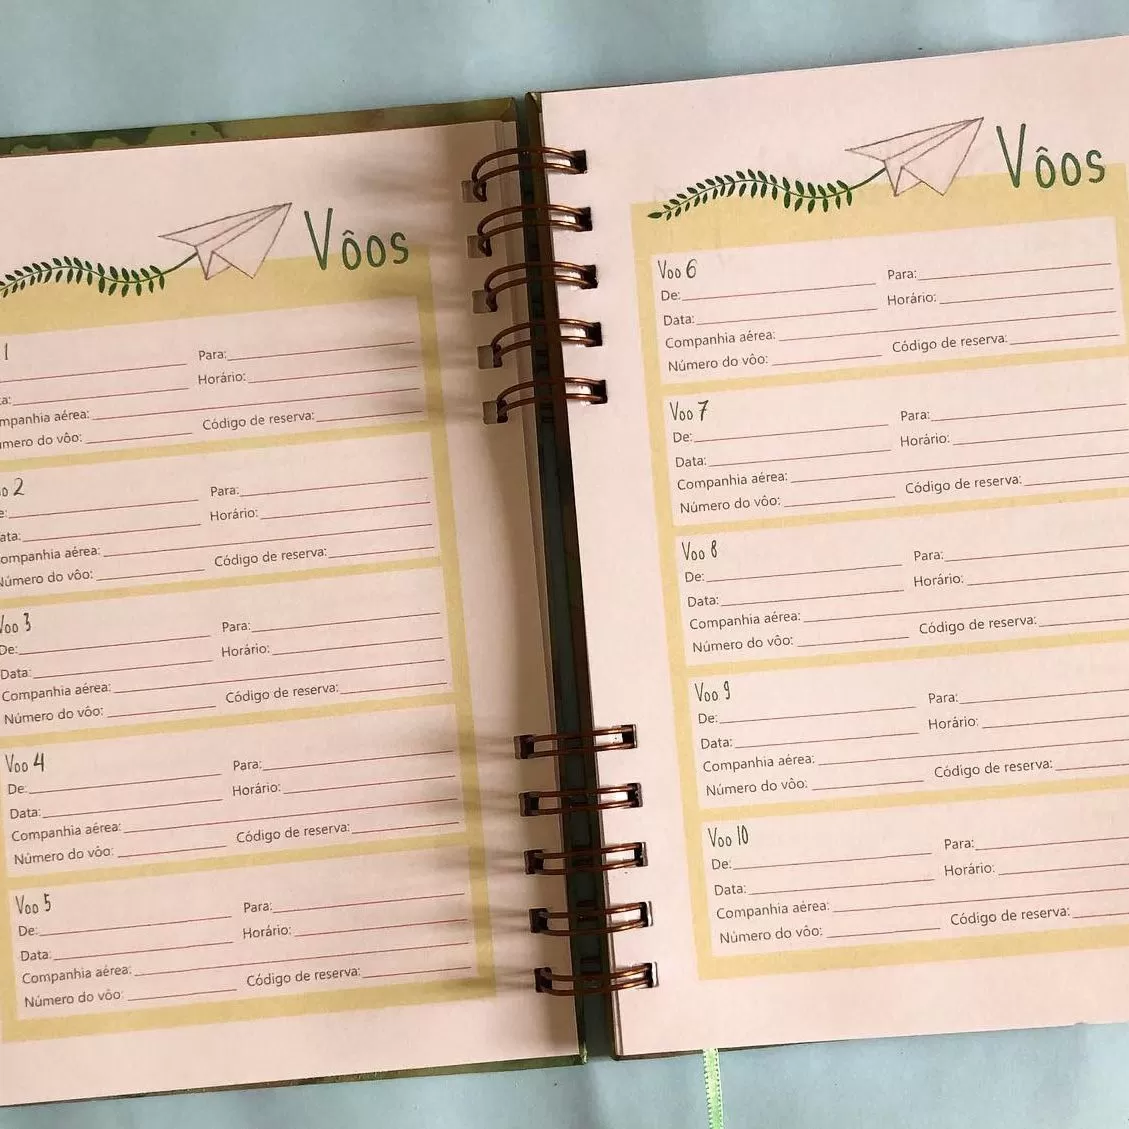 Vôos
1
Para:
a: Horário:
mpanhia aérea:
mero do vôo: Código de reserva:
o 2
e: Para:
ata: Horário:
ompanhia aérea:
Número do vôo: Código de reserva:
Voo 3
De: Para:
Data: Horário:
Companhia aérea:
Número do vôo: Código de reserva:
Voo 4
De: Para:
Data: Horário:
Companhia aérea:
Número do vôo: Código de reserva:
Voo 5
De: Para:
Data: Horário:
Companhia aérea:
Número do vôo: Código de reserva:
Vôos
Voo 6
De: Para:
Data: Horário:
Companhia aérea:
Número do vôo: Código de reserva:
Voo 7
De: Para:
Data: Horário:
Companhia aérea:
Número do vôo: Código de reserva:
Voo 8
De: Para:
Data: Horário:
Companhia aérea:
Número do vôo: Código de reserva:
Voo 9
De: Para:
Data: Horário:
Companhia aérea:
Número do vôo: Código de reserva:
Voo 10
De: Para:
Data: Horário:
Companhia aérea:
Número do vôo: Código de reserva: